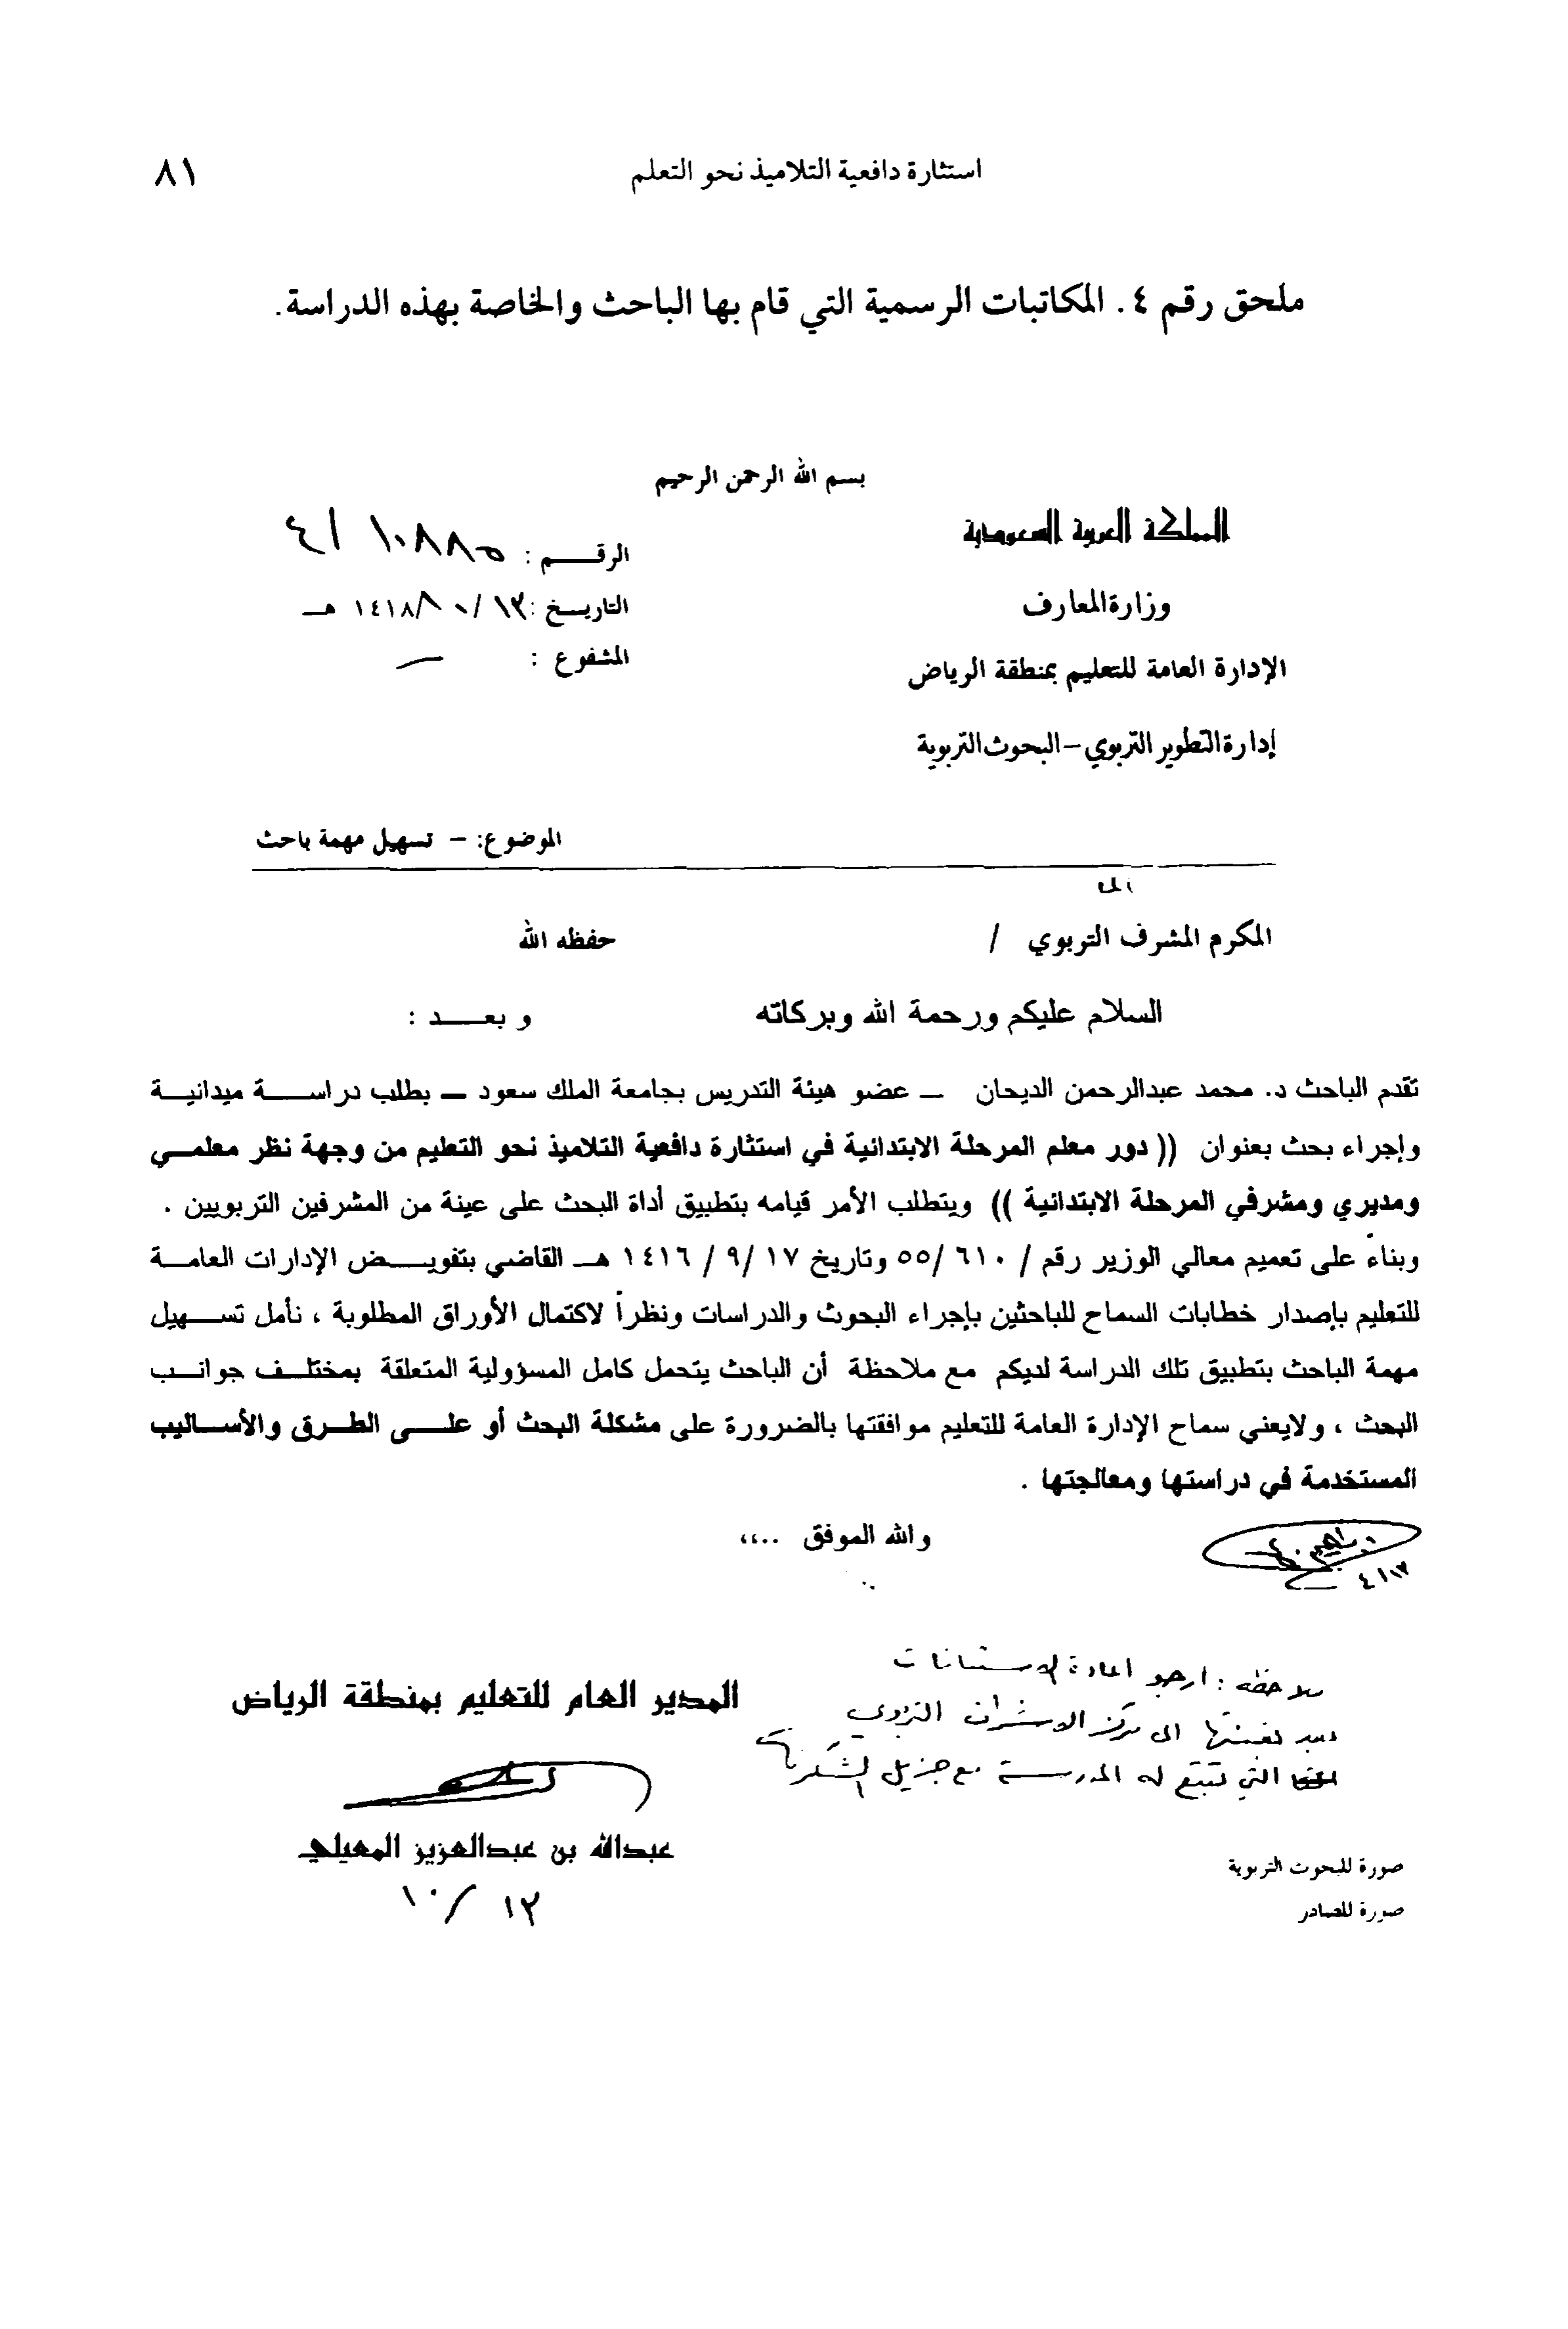 استثارة دافعية التلاميذ نحو التعلم ٨١
ملحق رقم ٤. المكاتبات الرسمية التي قام بها الباحث والخاصة بهذه الدراسة.
بسم الله الرحمن الرحيم
المملكة العربية السعودية
وزارة المعارف
الإدارة العامة للتعليم بمنطقة الرياض
إدارة التطوير التربوي – البحوث التربوية
الرقـــــم : ٤/١ ١٠٨٨٥
التاريـــخ : ١٣/ ١٠/ ١٤١٨ هـــ
المشفوع : —
الموضوع: – تسهيل مهمة باحث
المكرم المشرف التربوي / حفظه الله
السلام عليكم ورحمة الله وبركاته و بعـــــد :
تقدم الباحث د. محمد عبدالرحمن الديحان – عضو هيئة التدريس بجامعة الملك سعود – بطلب دراســـــة ميدانيـــة
وإجراء بحث بعنوان (( دور معلم المرحلة الابتدائية في استثارة دافعية التلاميذ نحو التعليم من وجهة نظر معلمـــي
ومديري ومشرفي المرحلة الابتدائية )) ويتطلب الأمر قيامه بتطبيق أداة البحث على عينة من المشرفين التربويين .
وبناءً على تعميم معالي الوزير رقم / ٦١٠ /٥٥ وتاريخ ١٧ /٩ / ١٤١٦ هــ القاضي بتفويـــــض الإدارات العامـــة
للتعليم بإصدار خطابات السماح للباحثين بإجراء البحوث والدراسات ونظراً لاكتمال الأوراق المطلوبة ، نأمل تســـهيل
مهمة الباحث بتطبيق تلك الدراسة لديكم مع ملاحظة أن الباحث يتحمل كامل المسؤولية المتعلقة بمختلـــف جوانـــب
البحث ، ولايعني سماح الإدارة العامة للتعليم موافقتها بالضرورة على مشكلة البحث أو علـــــى الطـــرق والأســـاليب
المستخدمة في دراستها ومعالجتها .
والله الموفق ..،،،
ملاحظة : ارجو اعادة الاستبانات
بعد تعبئتها الى مركز الاشراف التربوي
التي تتبع له المدرسة مع جزيل الشكر
المدير العام للتعليم بمنطقة الرياض
عبدالله بن عبدالعزيز المعيلي
١٣ / ١٠
صورة للبحوث التربوية
صورة للصادر